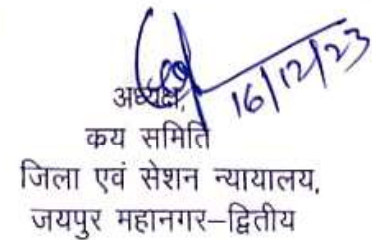 16/12/23
अध्यक्ष,
कय समिति
जिला एवं सेशन न्यायालय,
जयपुर महानगर–द्वितीय